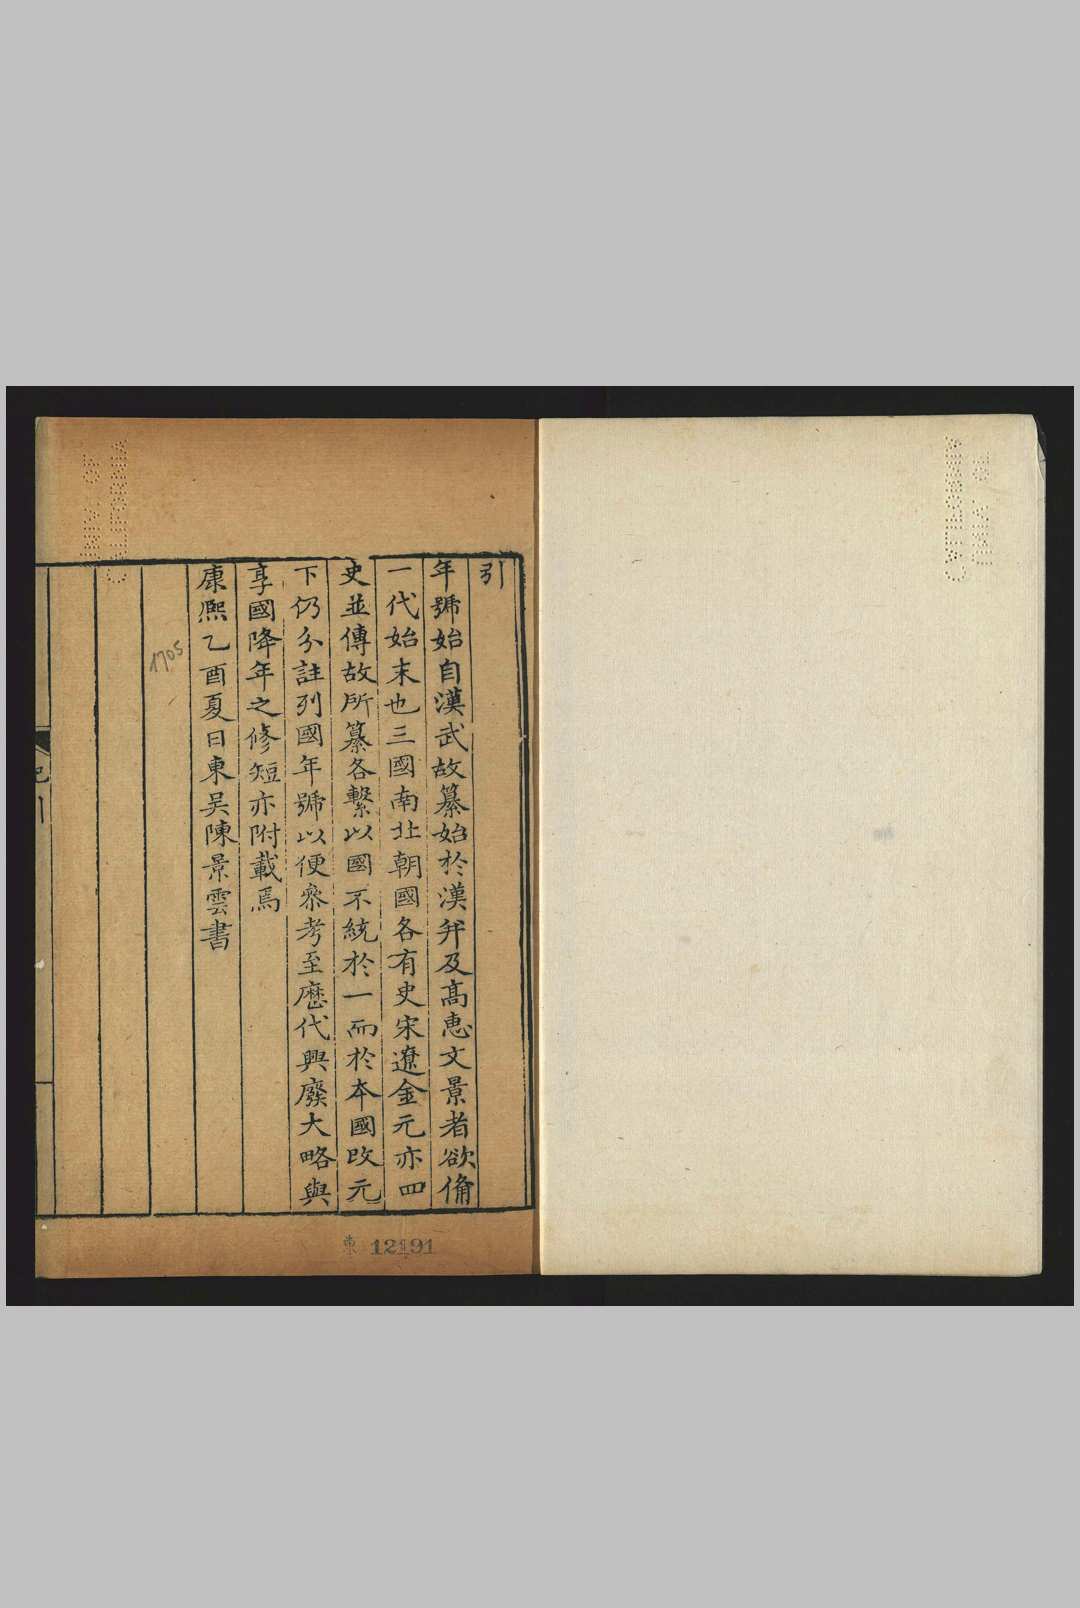 引
年號始自漢武故纂始於漢幷及高惠文景者欲俻
一代始末也三國南北朝國各有史宋遼金元亦四
史並傳故所纂各繫以國不統於一而於本國改元
下仍分註列國年號以便叅考至歷代興廢大略與
享國降年之修短亦附載焉
康熙乙酉夏日東吴陳景雲書
1705
紀引
東 12191
UNIV. OF
CALIFORNIA